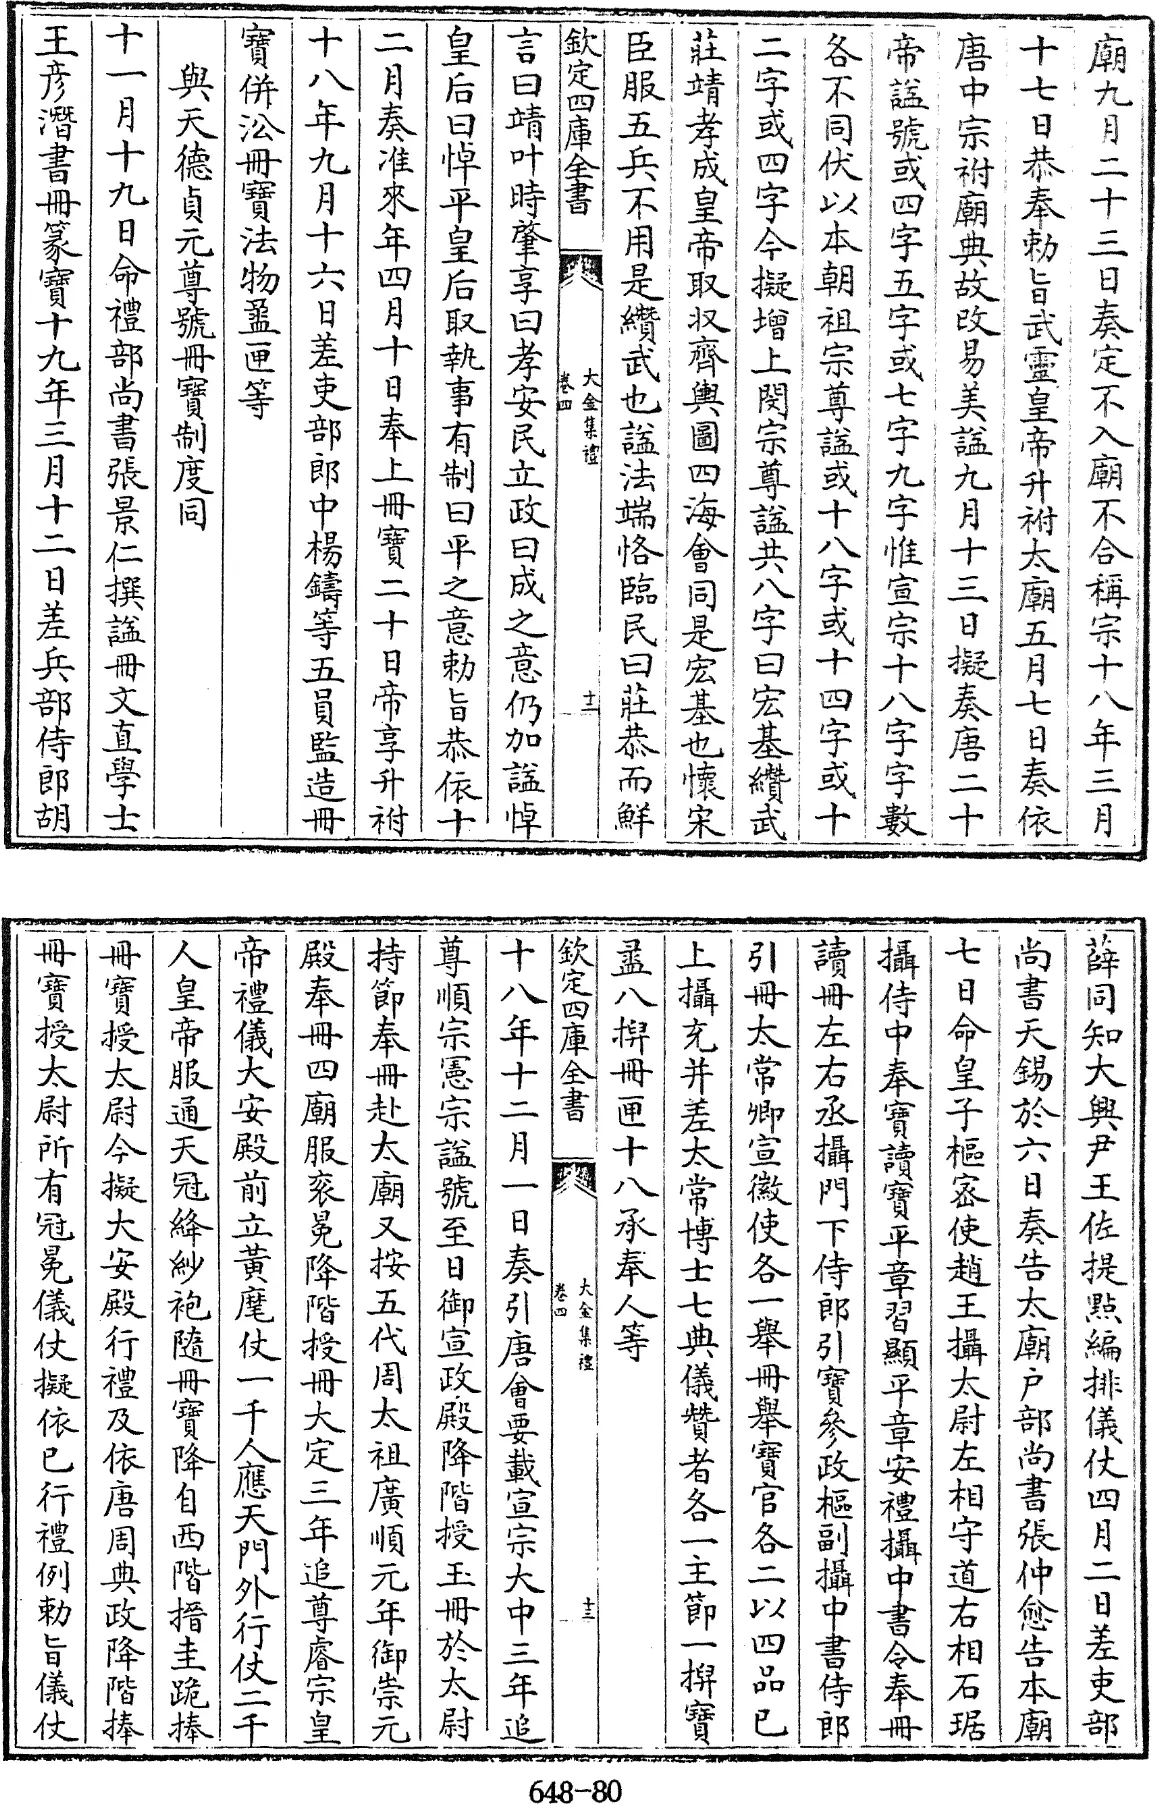 廟九月二十三日奏定不入廟不合稱宗十八年三月
十七日恭奉勅旨武靈皇帝升祔太廟五月七日奏依
唐中宗祔廟典故改易美諡九月十三日擬奏唐二十
帝諡號或四字五字或七字九字惟宣宗十八字字數
各不同伏以本朝祖宗尊諡或十八字或十四字或十
二字或四字今擬增上閔宗尊諡共八字曰宏基纘武
莊靖孝成皇帝取収齊輿圖四海會同是宏基也懷宋
臣服五兵不用是纘武也諡法端恪臨民曰莊恭而鮮
欽定四庫全書
大金集禮
卷四
十二
言曰靖叶時肇享曰孝安民立政曰成之意仍加諡悼
皇后曰悼平皇后取執事有制曰平之意勅旨恭依十
二月奏准來年四月十日奉上冊寶二十日帝享升祔
十八年九月十六日差吏部郎中楊鑄等五員監造冊
寶併沿冊寶法物盝匣等
與天德貞元尊號冊寶制度同
十一月十九日命禮部尚書張景仁撰諡冊文直學士
王彦潛書冊篆寶十九年三月十二日差兵部侍郎胡
薛同知大興尹王佐提點編排儀仗四月二日差吏部
尚書天錫於六日奏告太廟户部尚書張仲愈告本廟
七日命皇子樞宻使趙王攝太尉左相守道右相石琚
攝侍中奉寶讀寶平章習顯平章安禮攝中書令奉冊
讀冊左右丞攝門下侍郎引寶參政樞副攝中書侍郎
引冊太常卿宣徽使各一舉冊舉寶官各二以四品已
上攝充并差太常博士七典儀贊者各一主節一捭寶
盝八捭冊匣十八承奉人等
欽定四庫全書
大金集禮
卷四
十三
十八年十二月一日奏引唐會要載宣宗大中三年追
尊順宗憲宗諡號至日御宣政殿降階授玉冊於太尉
持節奉冊赴太廟又按五代周太祖廣順元年御崇元
殿奉冊四廟服衮冕降階授冊大定三年追尊睿宗皇
帝禮儀大安殿前立黃麾仗一千人應天門外行仗二千
人皇帝服通天冠絳紗袍隨冊寶降自西階搢圭跪捧
冊寶授太尉今擬大安殿行禮及依唐周典故降階捧
冊寶授太尉所有冠冕儀仗擬依已行禮例勅旨儀仗
648-80